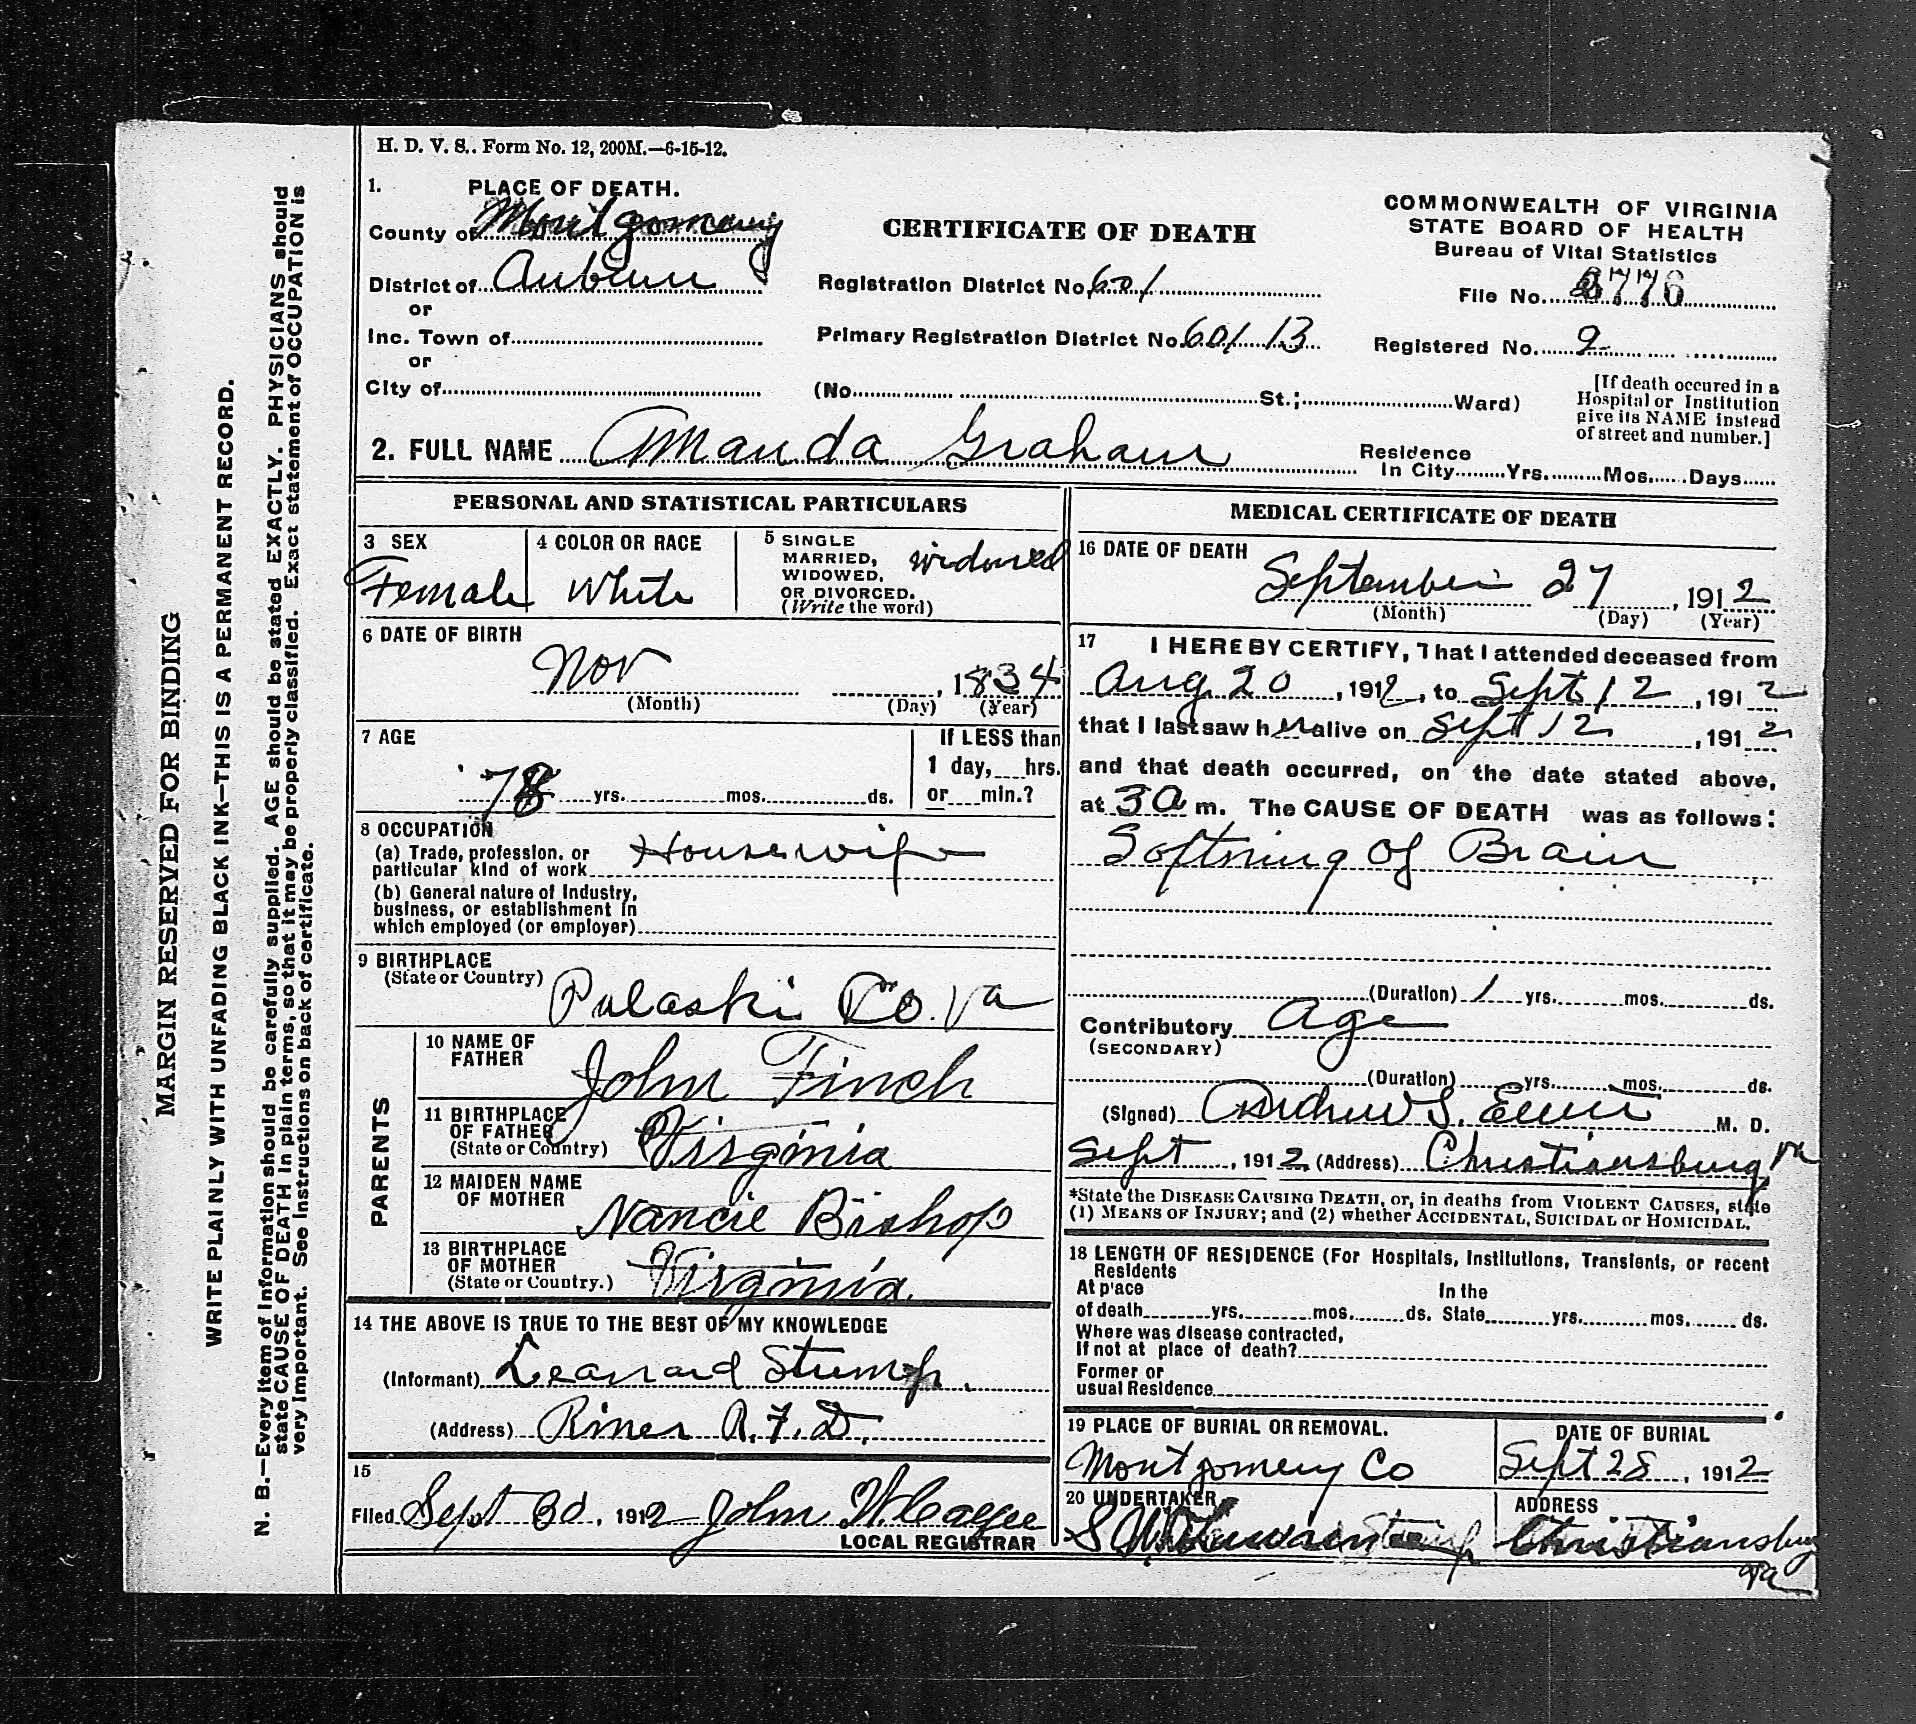 H. D. V. S.. Form No. 12, 200M.—6-15-12.
1. PLACE OF DEATH.
County of Montgomery
District of Auburn
or
Inc. Town of
or
City of
CERTIFICATE OF DEATH
Registration District No. 601
Primary Registration District No. 601 13
(No. St.; Ward)
COMMONWEALTH OF VIRGINIA
STATE BOARD OF HEALTH
Bureau of Vital Statistics
File No.
Registered No. 9
[If death occured in a
Hospital or Institution
give its NAME instead
of street and number.]
2. FULL NAME Amanda Graham
Residence
In City Yrs. Mos. Days
PERSONAL AND STATISTICAL PARTICULARS
3 SEX
Female
4 COLOR OR RACE
White
5 SINGLE
MARRIED,
WIDOWED,
OR DIVORCED.
(Write the word)
widowed
6 DATE OF BIRTH
Nov , 1834
(Month) (Day) (Year)
7 AGE
78 yrs. mos. ds.
If LESS than
1 day, hrs.
or min.?
8 OCCUPATION
(a) Trade, profession. or
particular kind of work Housewife
(b) General nature of Industry,
business, or establishment in
which employed (or employer)
9 BIRTHPLACE
(State or Country) Pulaski Co. Va
PARENTS
10 NAME OF
FATHER
John Finch
11 BIRTHPLACE
OF FATHER
(State or Country) Virginia
12 MAIDEN NAME
OF MOTHER
Nancie Bishop
13 BIRTHPLACE
OF MOTHER
(State or Country.) Virginia.
14 THE ABOVE IS TRUE TO THE BEST OF MY KNOWLEDGE
(Informant) Leanard Stump.
(Address) Riner R.F.D.
15
Filed Sept 30, 1912 John W. Calfee
LOCAL REGISTRAR
MEDICAL CERTIFICATE OF DEATH
16 DATE OF DEATH
September 27, 1912
(Month) (Day) (Year)
17 I HEREBY CERTIFY, That I attended deceased from
Aug 20, 1912, to Sept 12, 1912
that I last saw her alive on Sept 12, 1912
and that death occurred, on the date stated above,
at 3 a m. The CAUSE OF DEATH was as follows:
Softning of Brain
(Duration) 1 yrs. mos. ds.
Contributory Age
(SECONDARY)
(Duration) yrs. mos. ds.
(Signed) Andrew S. M. D.
Sept , 1912 (Address) Christiansburg Va
*State the DISEASE CAUSING DEATH, or, in deaths from VIOLENT CAUSES, state
(1) MEANS OF INJURY; and (2) whether ACCIDENTAL, SUICIDAL or HOMICIDAL.
18 LENGTH OF RESIDENCE (For Hospitals, Institutions, Transients, or recent
Residents
At place In the
of death yrs. mos. ds. State yrs. mos. ds.
Where was disease contracted,
If not at place of death?
Former or
usual Residence
19 PLACE OF BURIAL OR REMOVAL.
Montgomery Co
DATE OF BURIAL
Sept 28, 1912
20 UNDERTAKER
ADDRESS
Christiansburg
Va
MARGIN RESERVED FOR BINDING
WRITE PLAINLY WITH UNFADING BLACK INK—THIS IS A PERMANENT RECORD.
N. B.—Every item of information should be carefully supplied. AGE should be stated EXACTLY. PHYSICIANS should
state CAUSE OF DEATH in plain terms, so that it may be properly classified. Exact statement of OCCUPATION is
very important. See instructions on back of certificate.